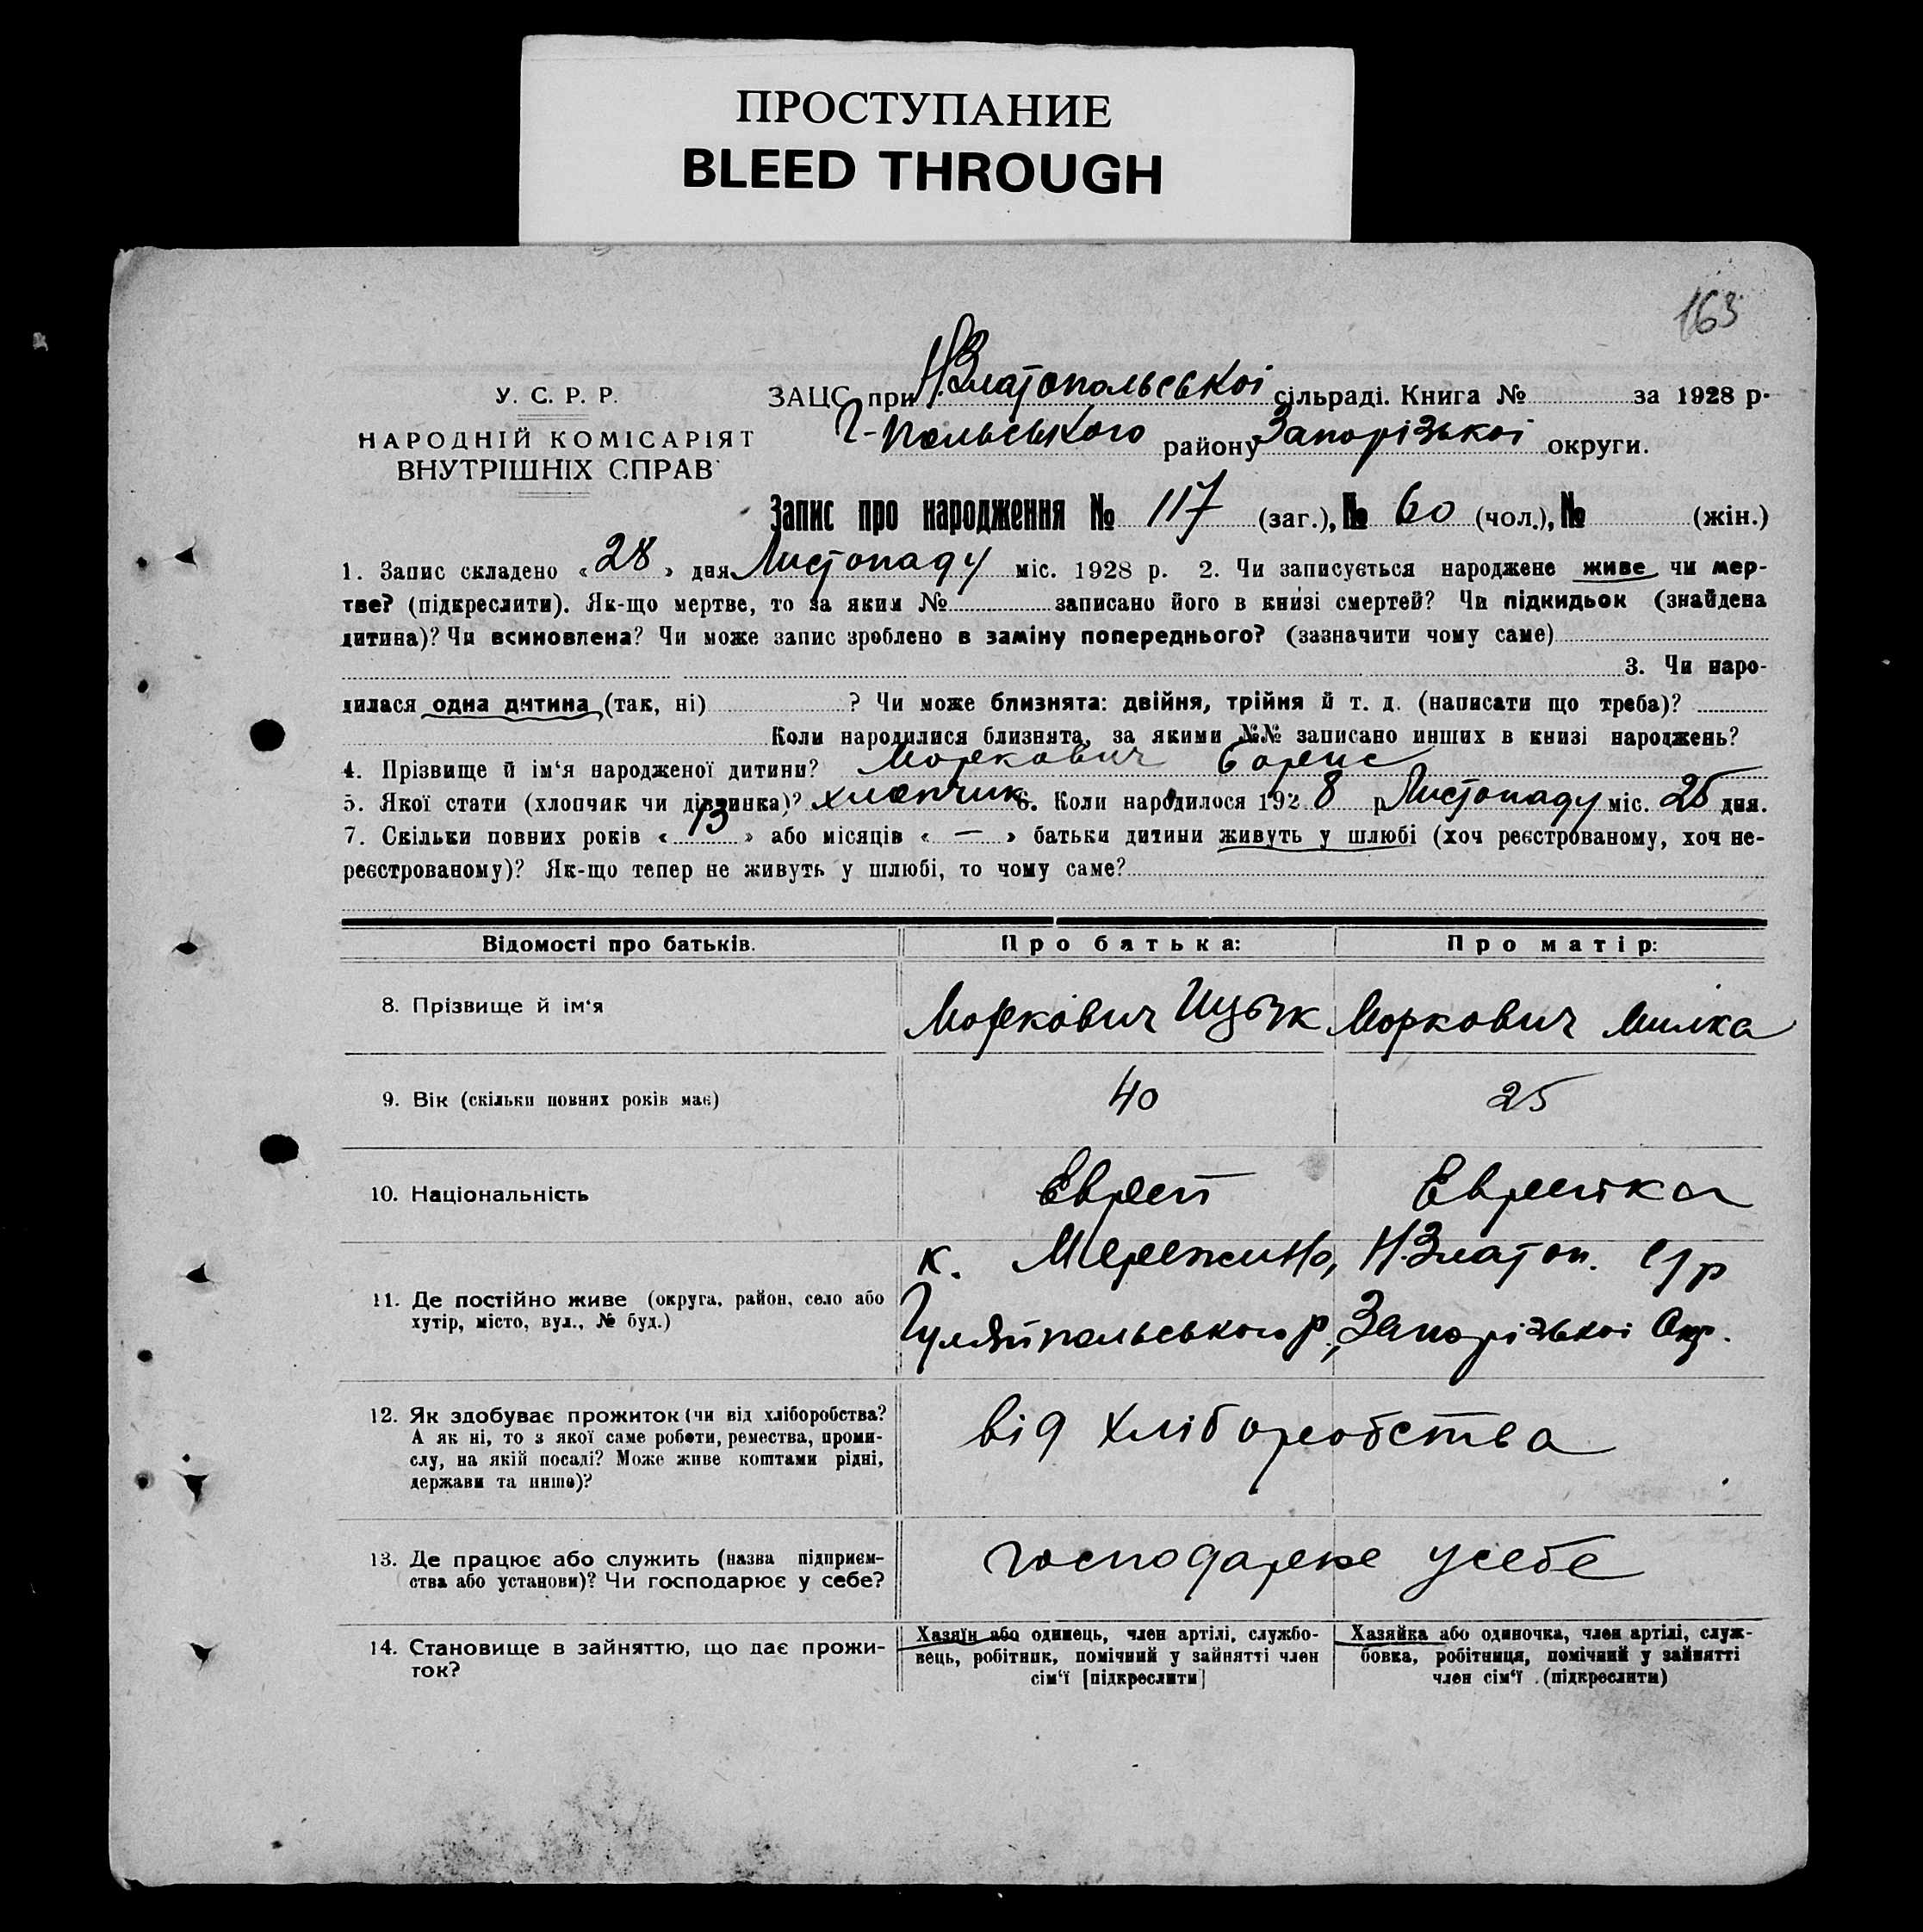 ПРОСТУПАНИЕ
BLEED THROUGH
163
У. С. Р. Р.
НАРОДНІЙ КОМІСАРІЯТ
ВНУТРІШНІХ СПРАВ
ЗАЦС при Н.Златопольської сільраді. Книга № за 1928 р.
Г-Польського району Запорізької округи.
Запис про народження № 117 (заг.), № 60 (чол.), № (жін.)
1. Запис складено « 28 » дня Листопаду міс. 1928 р. 2. Чи записується народжене живе чи мер-
тве? (підкреслити). Як-що мертве, то за яким № записано його в книзі смертей? Чи підкидьок (знайдена
дитина)? Чи всиновлена? Чи може запис зроблено в заміну попереднього? (зазначити чому саме)
3. Чи наро-
дилася одна дитина (так, ні) ? Чи може близнята: двійня, трійня й т. д. (написати що треба)?
Коли народилися близнята, за якими №№ записано инших в книзі народжень?
4. Прізвище й ім‘я народженої дитини? Моркович Борис
5. Якої стати (хлопчик чи дівчинка)? хлопчик 6. Коли народилося 1928 р Листопаду міс. 25 дня.
7. Скільки повних років « 13 » або місяців « — » батьки дитини живуть у шлюбі (хоч реєстрованому, хоч не-
реєстрованому)? Як-що тепер не живуть у шлюбі, то чому саме?
Відомості про батьків. Про батька: Про матір:
8. Прізвище й ім‘я Моркович Ицьк Моркович Милка
9. Вік (скільки повних років має) 40 25
10. Національність Еврей Еврейка
к. Мережино, Н.Златоп. с/р
11. Де постійно живе (округа, район, село або
хутір, місто, вул., № буд.) Гуляйпольського р., Запорізької Окр.
12. Як здобуває прожиток (чи від хліборобства?
А як ні, то з якої саме роботи, ремества, проми-
слу, на якій посаді? Може живе коштами рідні,
держави та инше)?
від хліборобства
13. Де працює або служить (назва підприєм-
ства або установи)? Чи господарює у себе?
господарює у себе
14. Становище в зайняттю, що дає прожи-
ток?
Хазяїн або одинець, член артілі, службо-
вець, робітник, помічний у зайнятті член
сім‘ї [підкреслити]
Хазяйка або одиночка, член артілі, служ-
бовка, робітниця, помічний у зайнятті
член сім‘ї (підкреслити)